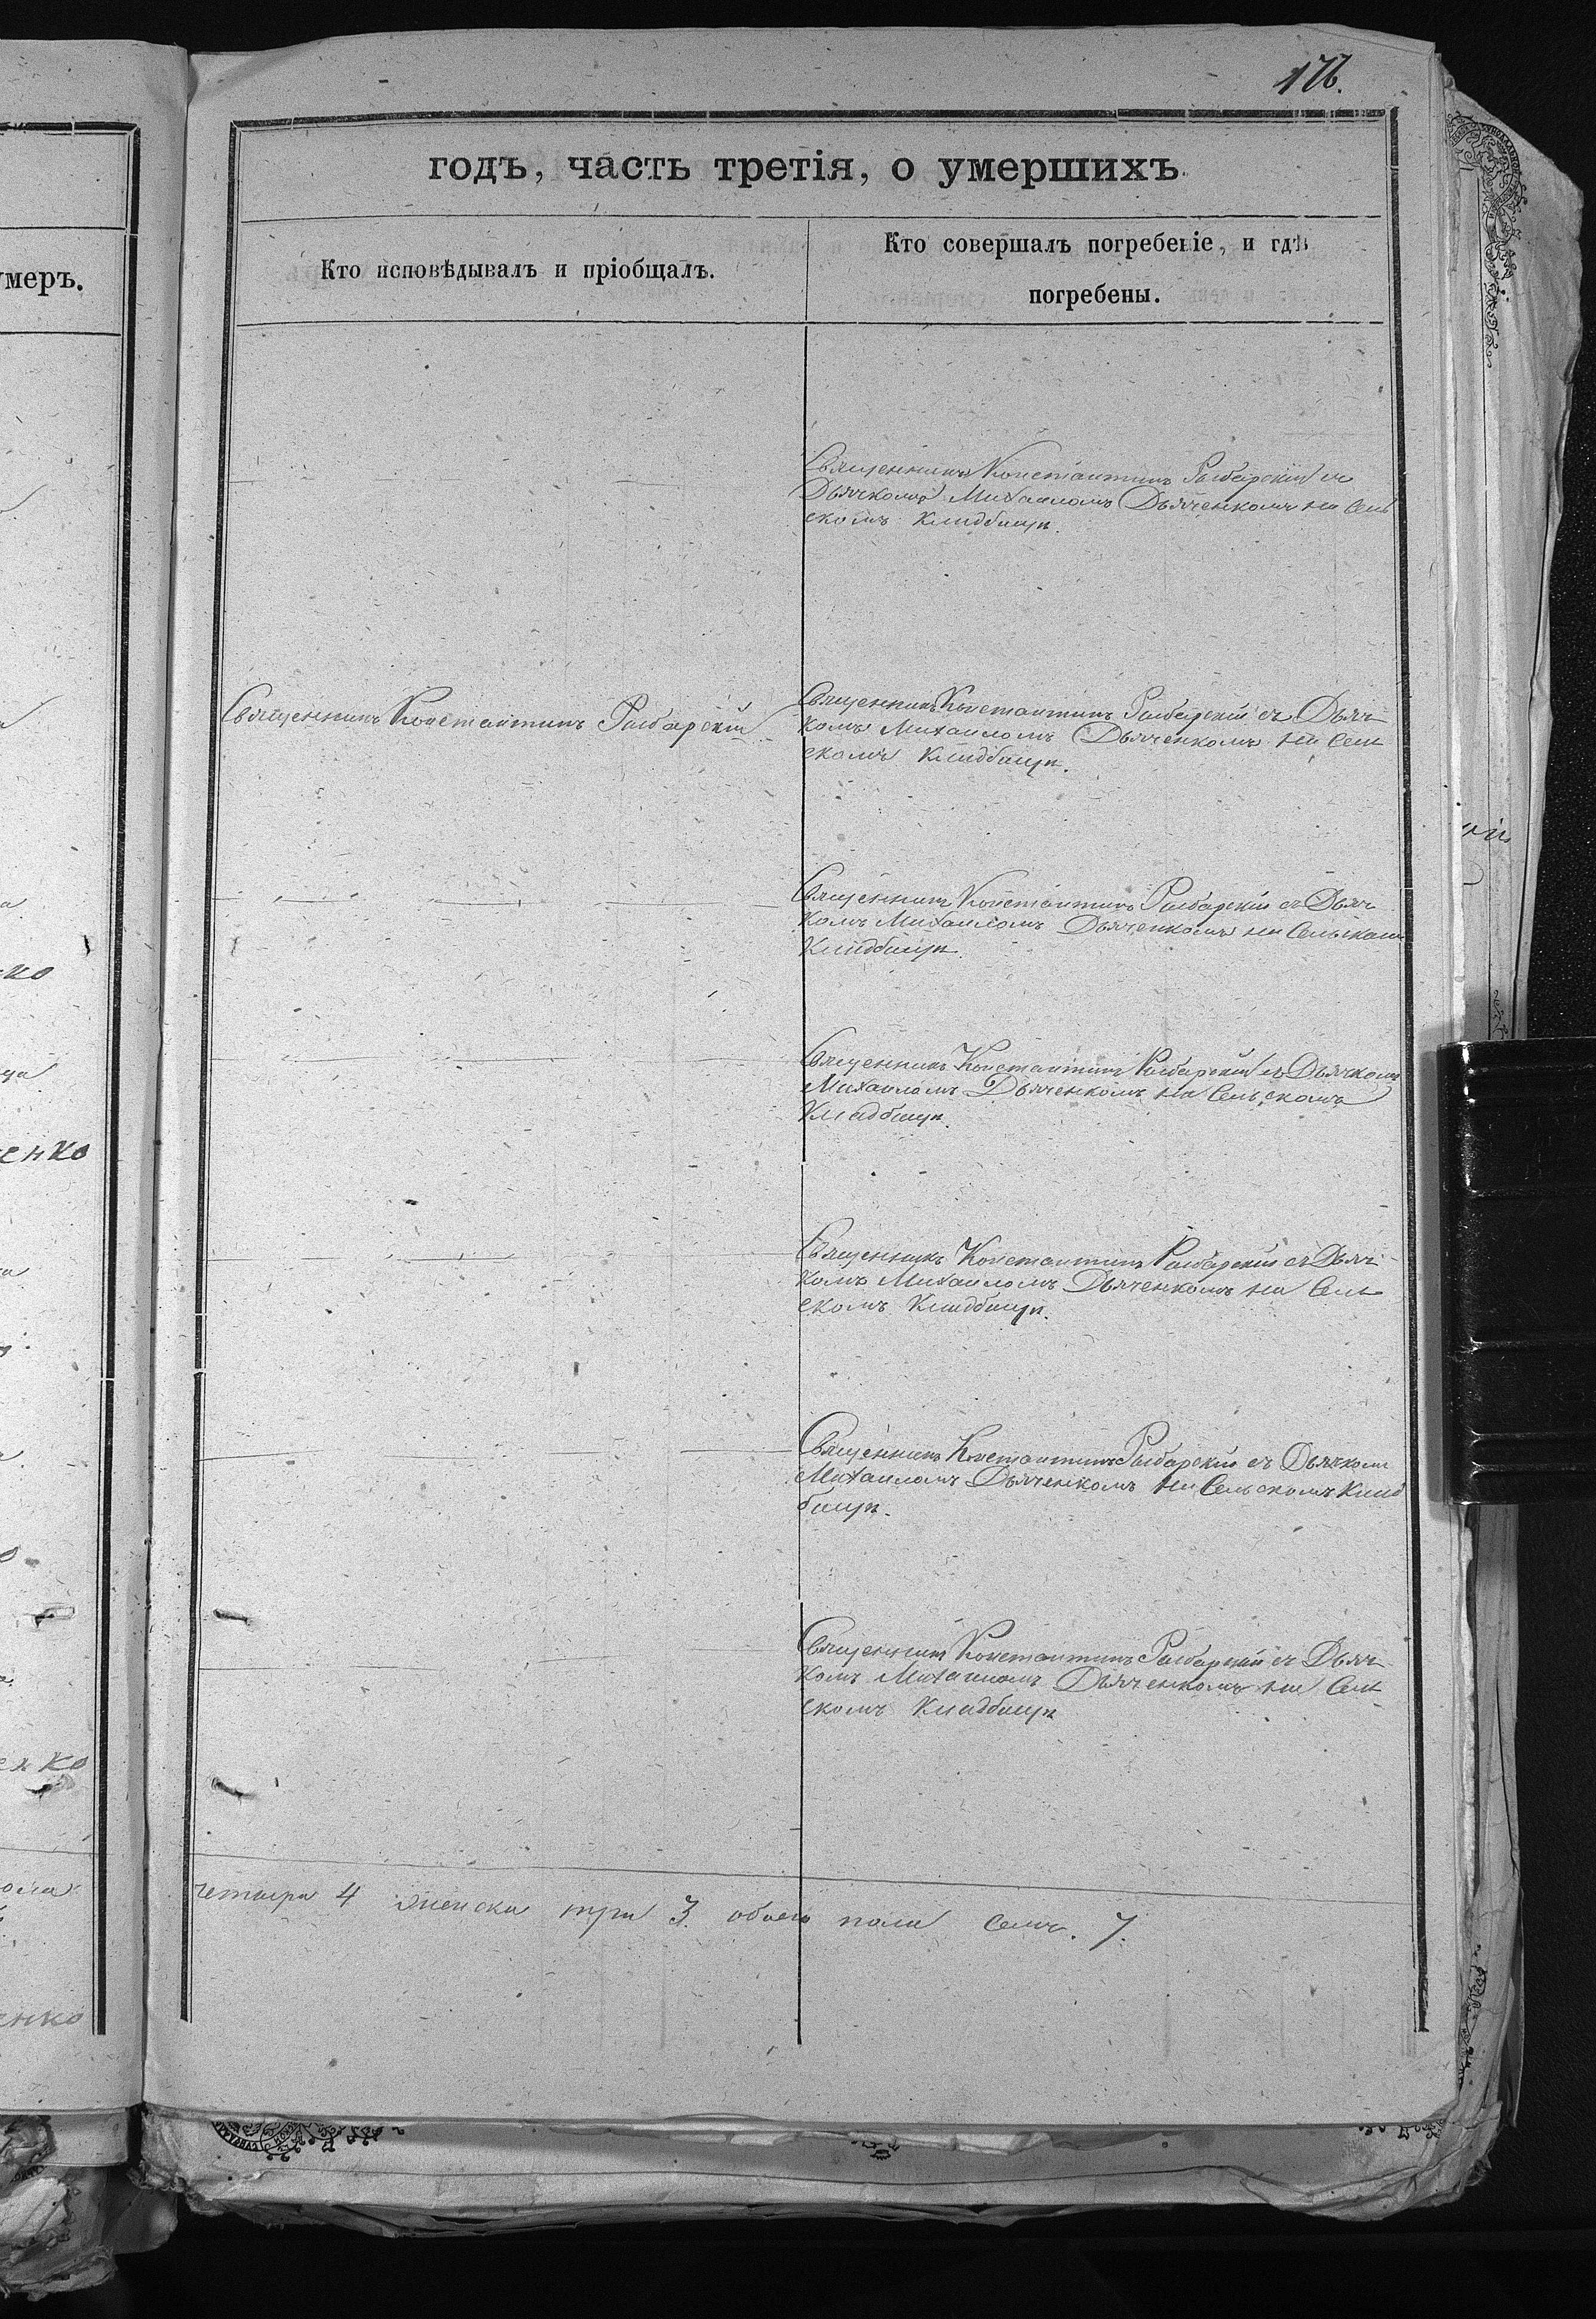 176.
годъ, часть третія, о умершихъ.
умеръ.
Кто исповѣдывалъ и пріобщалъ.
Кто совершалъ погребеніе, и гдѣ
погребены.
Священникъ Константинъ Рыбарскій съ
Дьячкомъ Михаиломъ Дьяченкомъ на Сель
скомъ кладбищѣ.
Священникъ Константинъ Рыбарскій
Священникъ Константинъ Рыбарскій съ Дьяч
комъ Михаиломъ Дьяченкомъ на Сель
скомъ кладбищѣ.
Священникъ Константинъ Рыбарскій съ Дьяч
комъ Михаиломъ Дьяченкомъ на Сельскомъ
Кладбищѣ.
Священникъ Константинъ Рыбарскій съ Дьячкомъ
Михаиломъ Дьяченкомъ на Сельскомъ
Кладбищѣ.
Священникъ Константинъ Рыбарскій съ Дьяч
комъ Михаиломъ Дьяченкомъ на Сель
скомъ Кладбищѣ.
Священникъ Константинъ Рыбарскій съ Дьячкомъ
Михаиломъ Дьяченкомъ на Сельскомъ Клад
бищѣ.
Священникъ Константинъ Рыбарскій съ Дьяч
комъ Михаиломъ Дьяченкомъ на Сель
скомъ Кладбищѣ
четыри 4 женска три 3. обоего пола семь. 7.